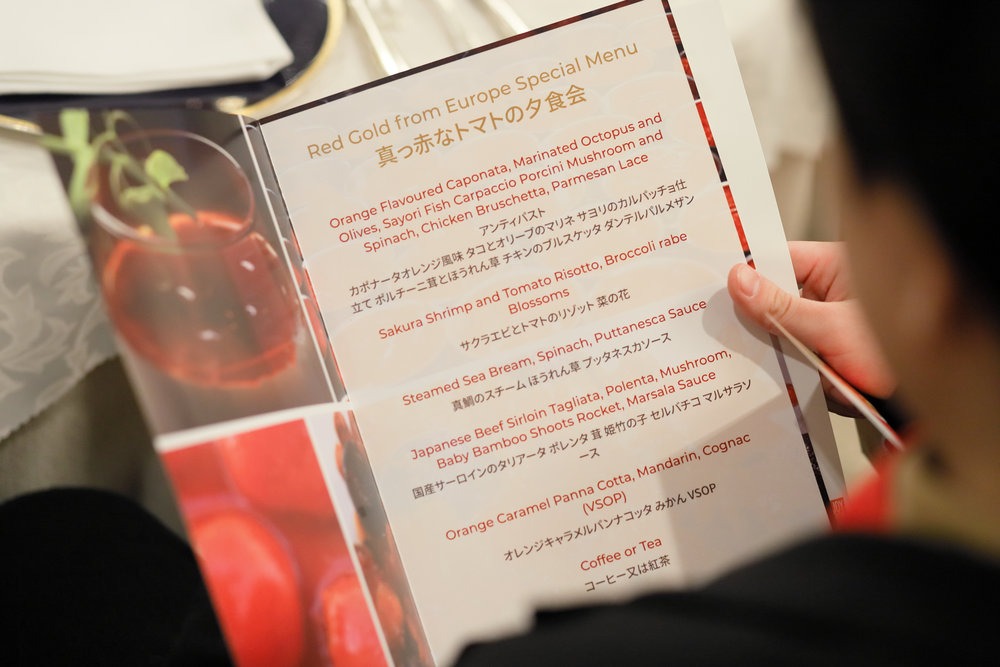 Red Gold from Europe Special Menu
真っ赤なトマトの夕食会
Orange Flavoured Caponata, Marinated Octopus and
Olives, Sayori Fish Carpaccio Porcini Mushroom and
Spinach, Chicken Bruschetta, Parmesan Lace
アンティパスト
カポナータオレンジ風味 タコとオリーブのマリネ サヨリのカルパッチョ仕
立て ポルチーニ茸とほうれん草 チキンのブルスケッタ ダンテルパルメザン
Sakura Shrimp and Tomato Risotto, Broccoli rabe
Blossoms
サクラエビとトマトのリゾット 菜の花
Steamed Sea Bream, Spinach, Puttanesca Sauce
真鯛のスチーム ほうれん草 プッタネスカソース
Japanese Beef Sirloin Tagliata, Polenta, Mushroom,
Baby Bamboo Shoots Rocket, Marsala Sauce
国産サーロインのタリアータ ポレンタ 茸 姫竹の子 セルバチコ マルサラソ
ース
Orange Caramel Panna Cotta, Mandarin, Cognac
(VSOP)
オレンジキャラメルパンナコッタ みかん VSOP
Coffee or Tea
コーヒー又は紅茶